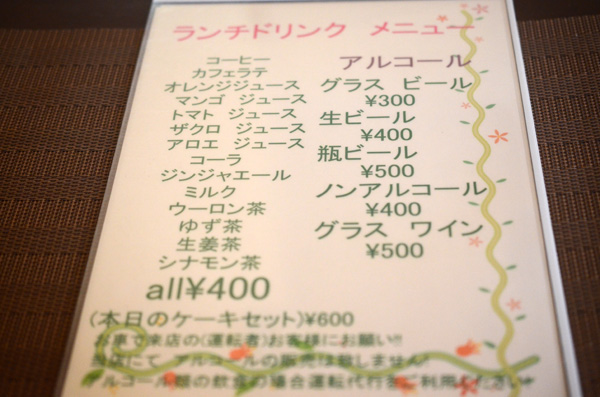 ランチドリンク メニュー
コーヒー
カフェラテ
オレンジジュース
マンゴ ジュース
トマト ジュース
ザクロ ジュース
アロエ ジュース
コーラ
ジンジャエール
ミルク
ウーロン茶
ゆず茶
生姜茶
シナモン茶
all¥400
アルコール
グラス ビール
¥300
生ビール
¥400
瓶ビール
¥500
ノンアルコール
¥400
グラス ワイン
¥500
(本日のケーキセット)¥600
お車で来店の(運転者)お客様にお願い!!
当店にて アルコールの販売は致しません!
アルコール類の飲食の場合運転代行をご利用ください